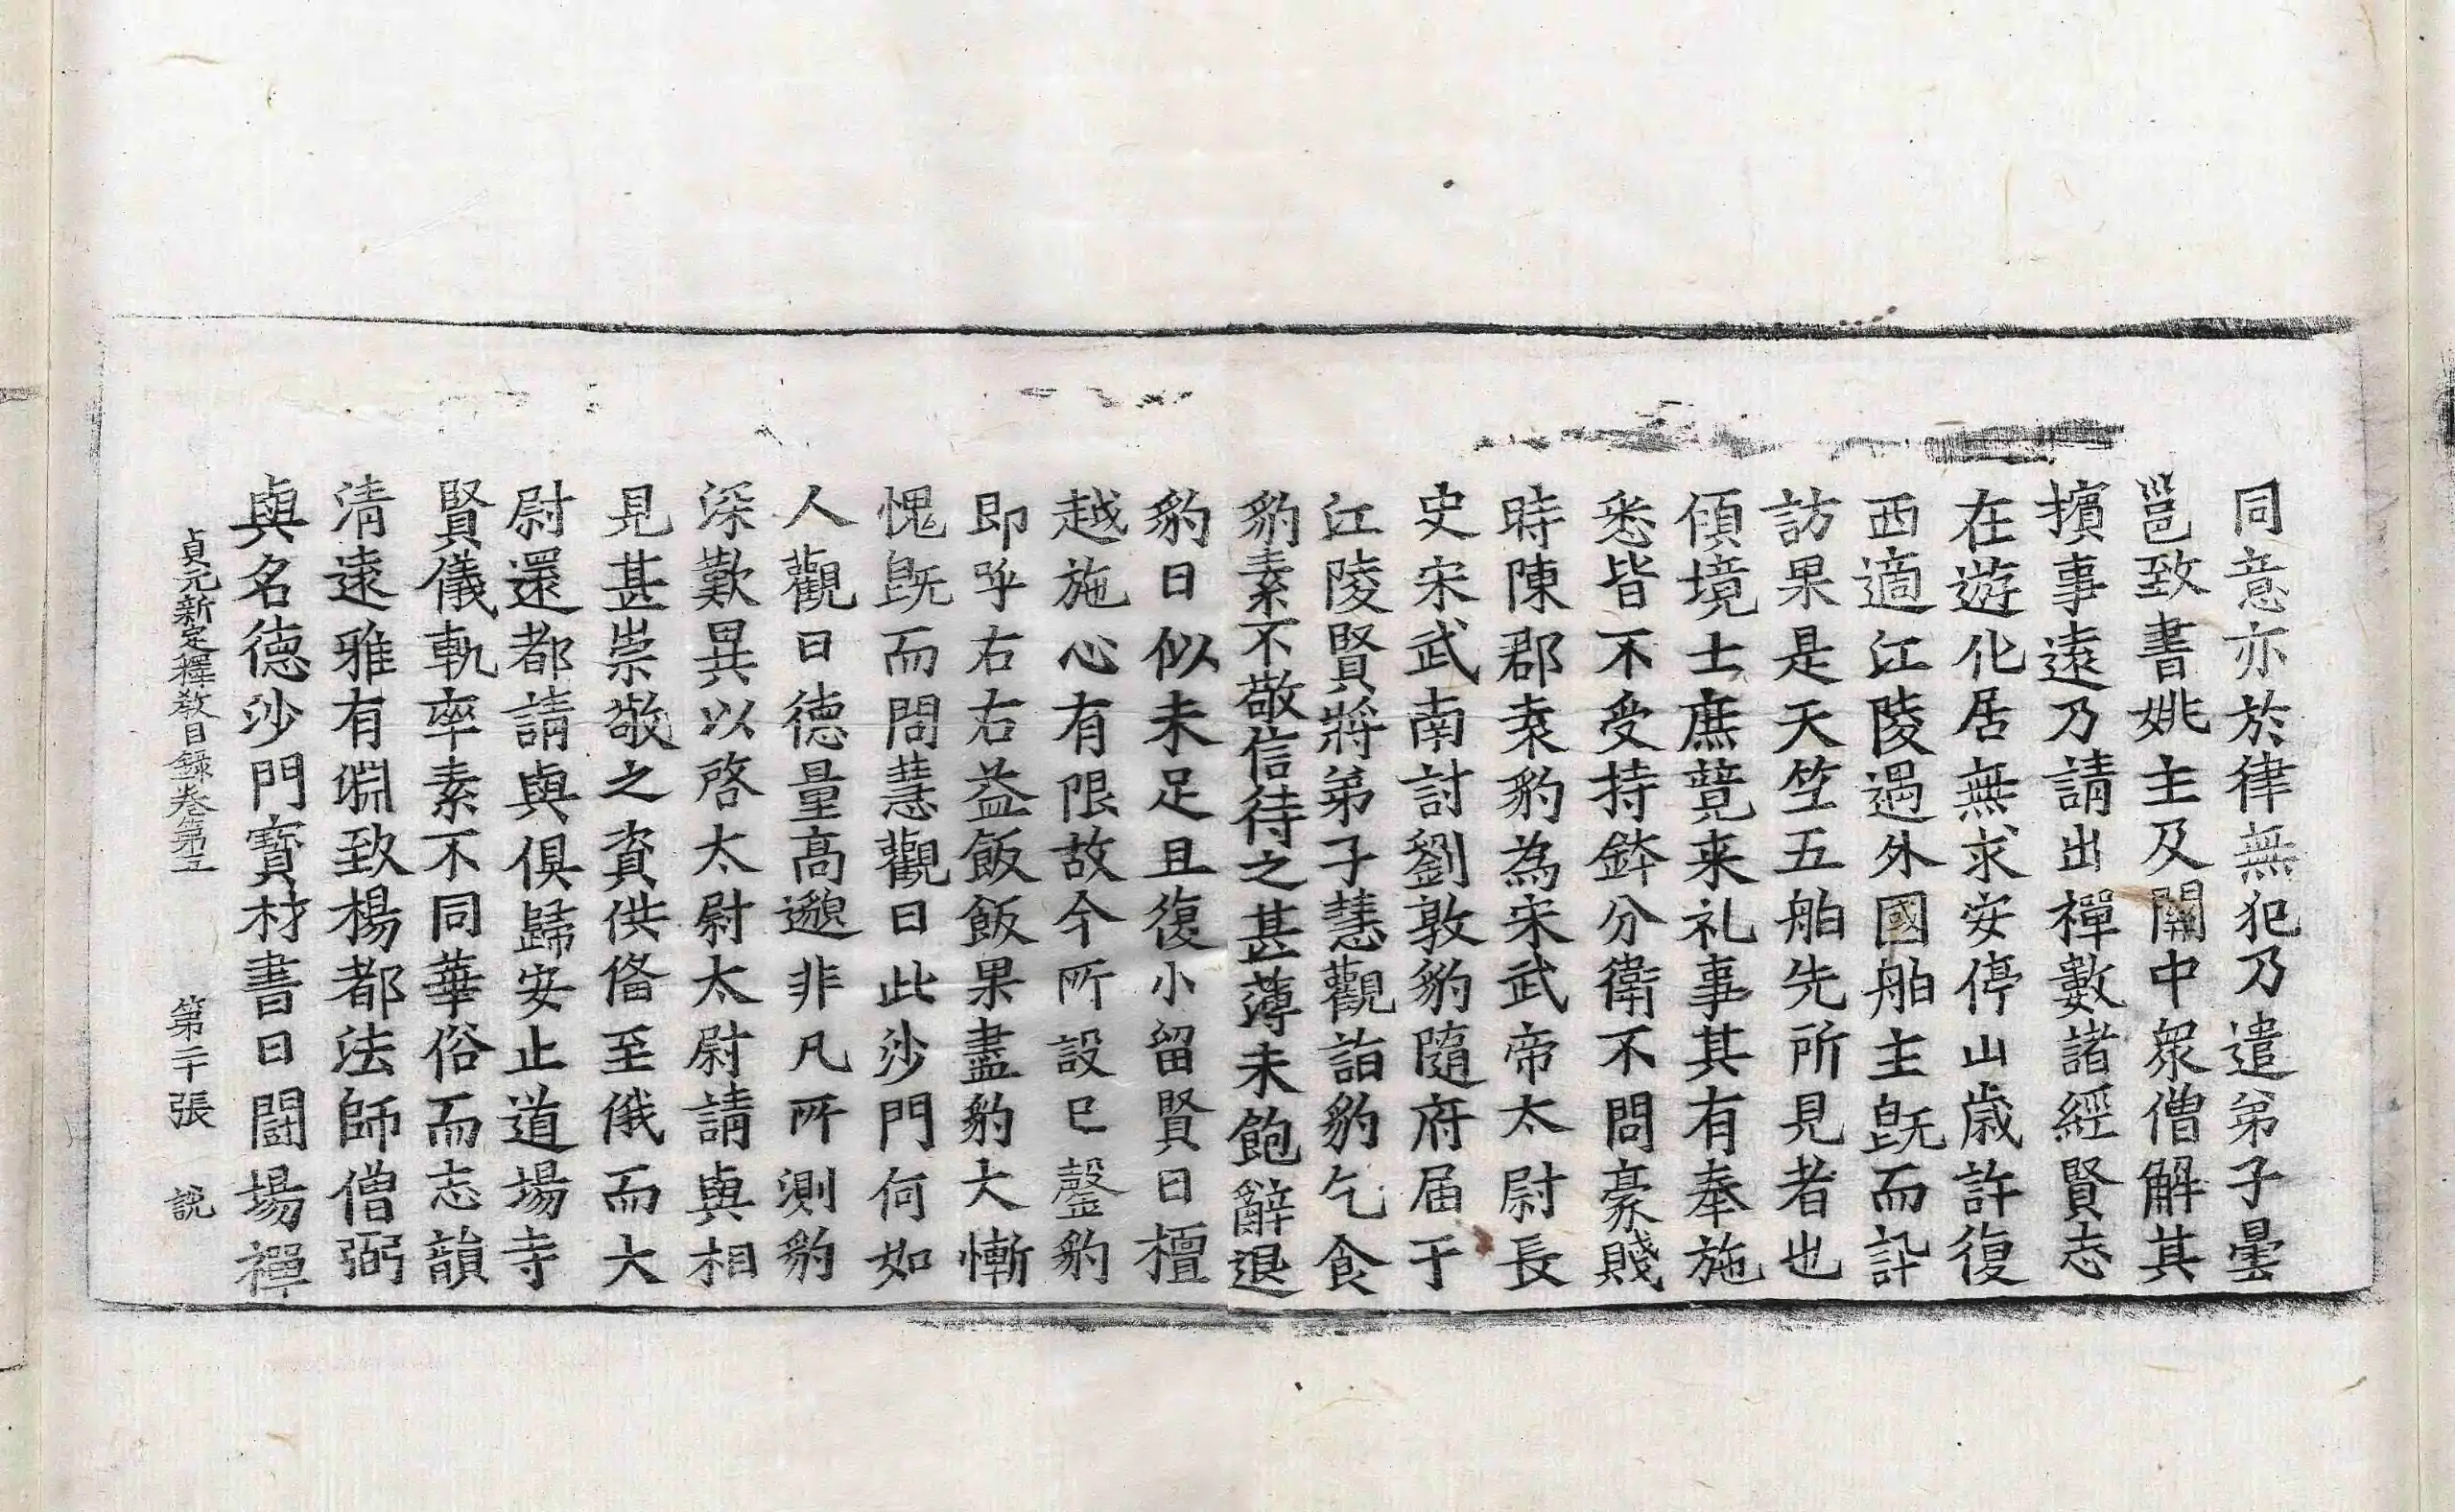 同意亦於律無犯乃遣弟子曇
邕致書姚主及關中衆僧解其
擯事遠乃請出禪數諸經賢志
在遊化居無求安停山歳許復
西適江陵遇外國舶主旣而訃
訪果是天竺五舶先所見者也
傾境士庶競来礼事其有奉施
悉皆不受持鉢分衛不問豪賤
時陳郡袁豹為宋武帝太尉長
史宋武南討劉敦豹隨府届于
江陵賢將弟子慧觀詣豹乞食
豹素不敬信待之甚薄未飽辭退
豹曰似未足且復小留賢曰檀
越施心有限故令所設已罄豹
即呼右右益飯飯果盡豹大慚
愧旣而問慧觀曰此沙門何如
人觀曰德量高邈非凡所測豹
深歎異以啓太尉太尉請與相
見甚崇敬之資供俻至俄而大
尉還都請與俱歸安止道場寺
賢儀軌率素不同華俗而志韻
清遠雅有淵致楊都法師僧弼
與名德沙門寳林書曰鬪場禪
貞元新定釋教目録卷第五　第二十張　説